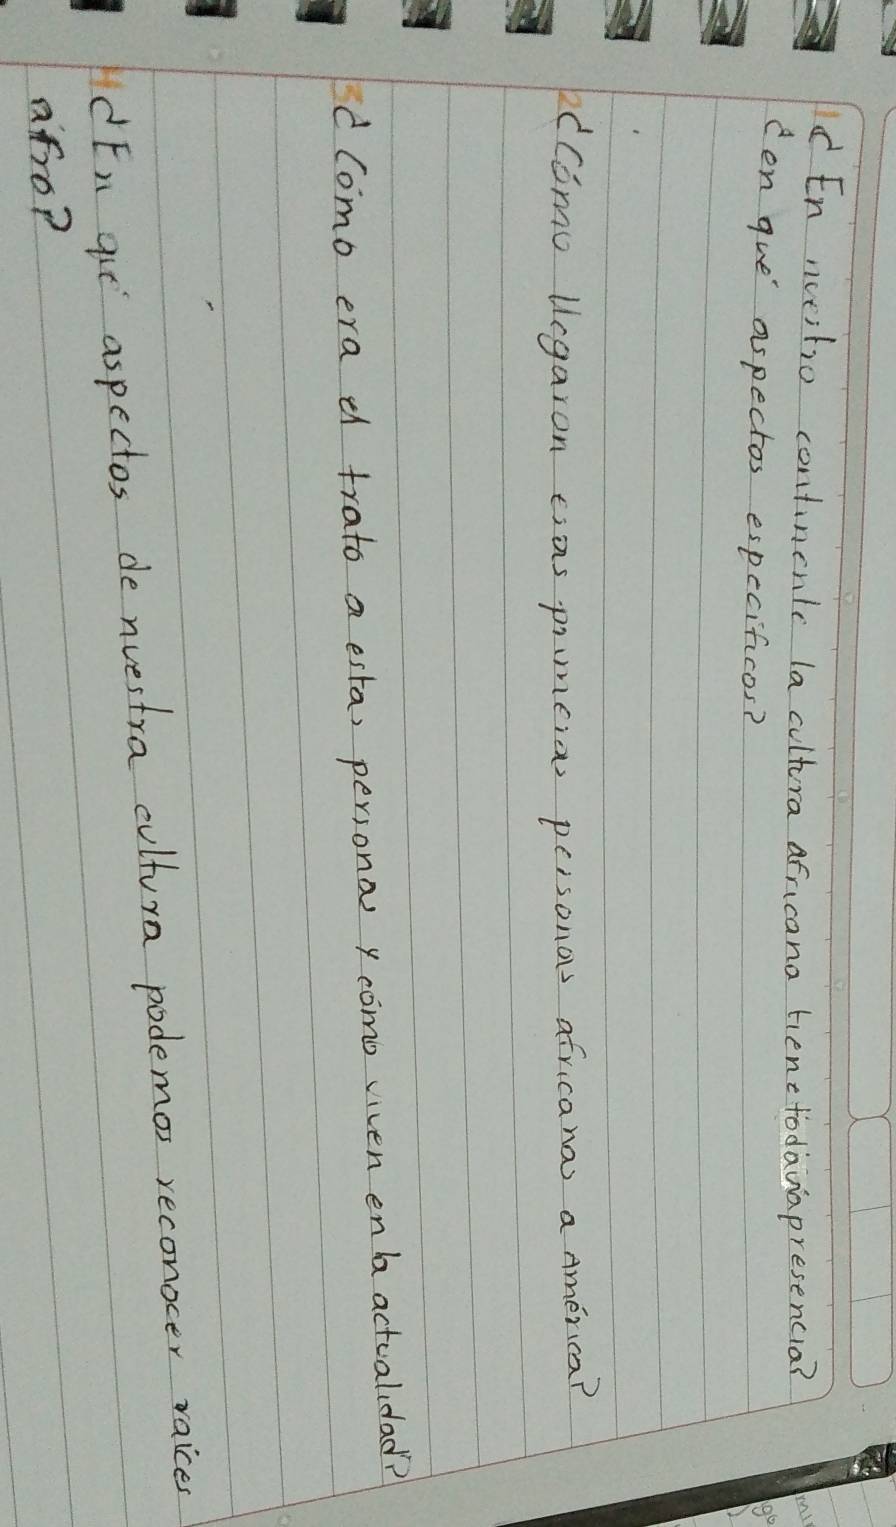 1 ¿En nuestro continente la cultura africana tiene todavía presencia?
¿en qué aspectos especificos?
2 ¿Cómo llegaron esas primeras personas africanas a América?
3 ¿Cómo era el trato a estas personas y cómo viven en la actualidad?
4 ¿En qué aspectos de nuestra cultura podemos reconocer raíces
afro?